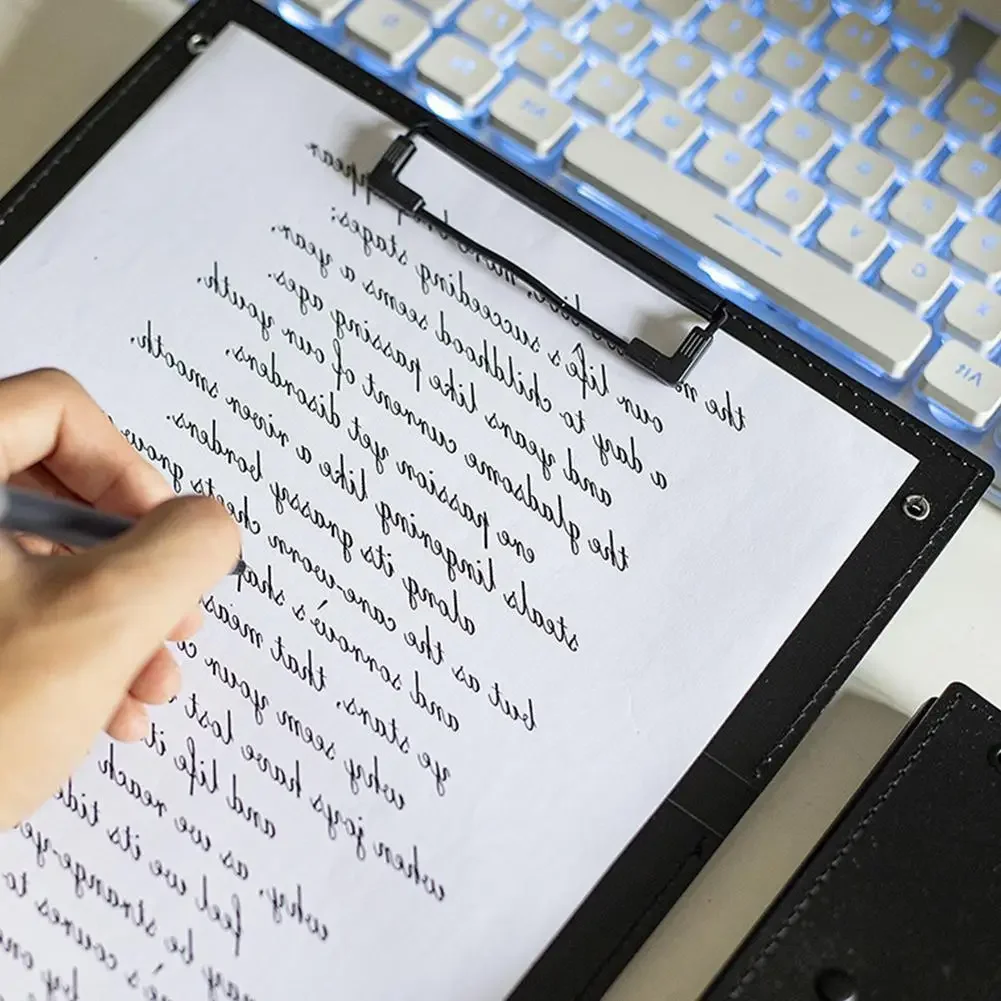 the live, brief appear
our life's succeeding stages:
a day to childhood seems a year,
and years like passing ages.
the gladsome current of our youth,
ere passion yet disorders,
steals lingering like a river smooth,
along its grassy borders.
but as the care-worn cheeks grow
and sorrow's
ye stars, that
why seem your
when joys have lost
and life
why, as we reach
feel we its tide
be strange-
coures to
by one
Alt
Alt